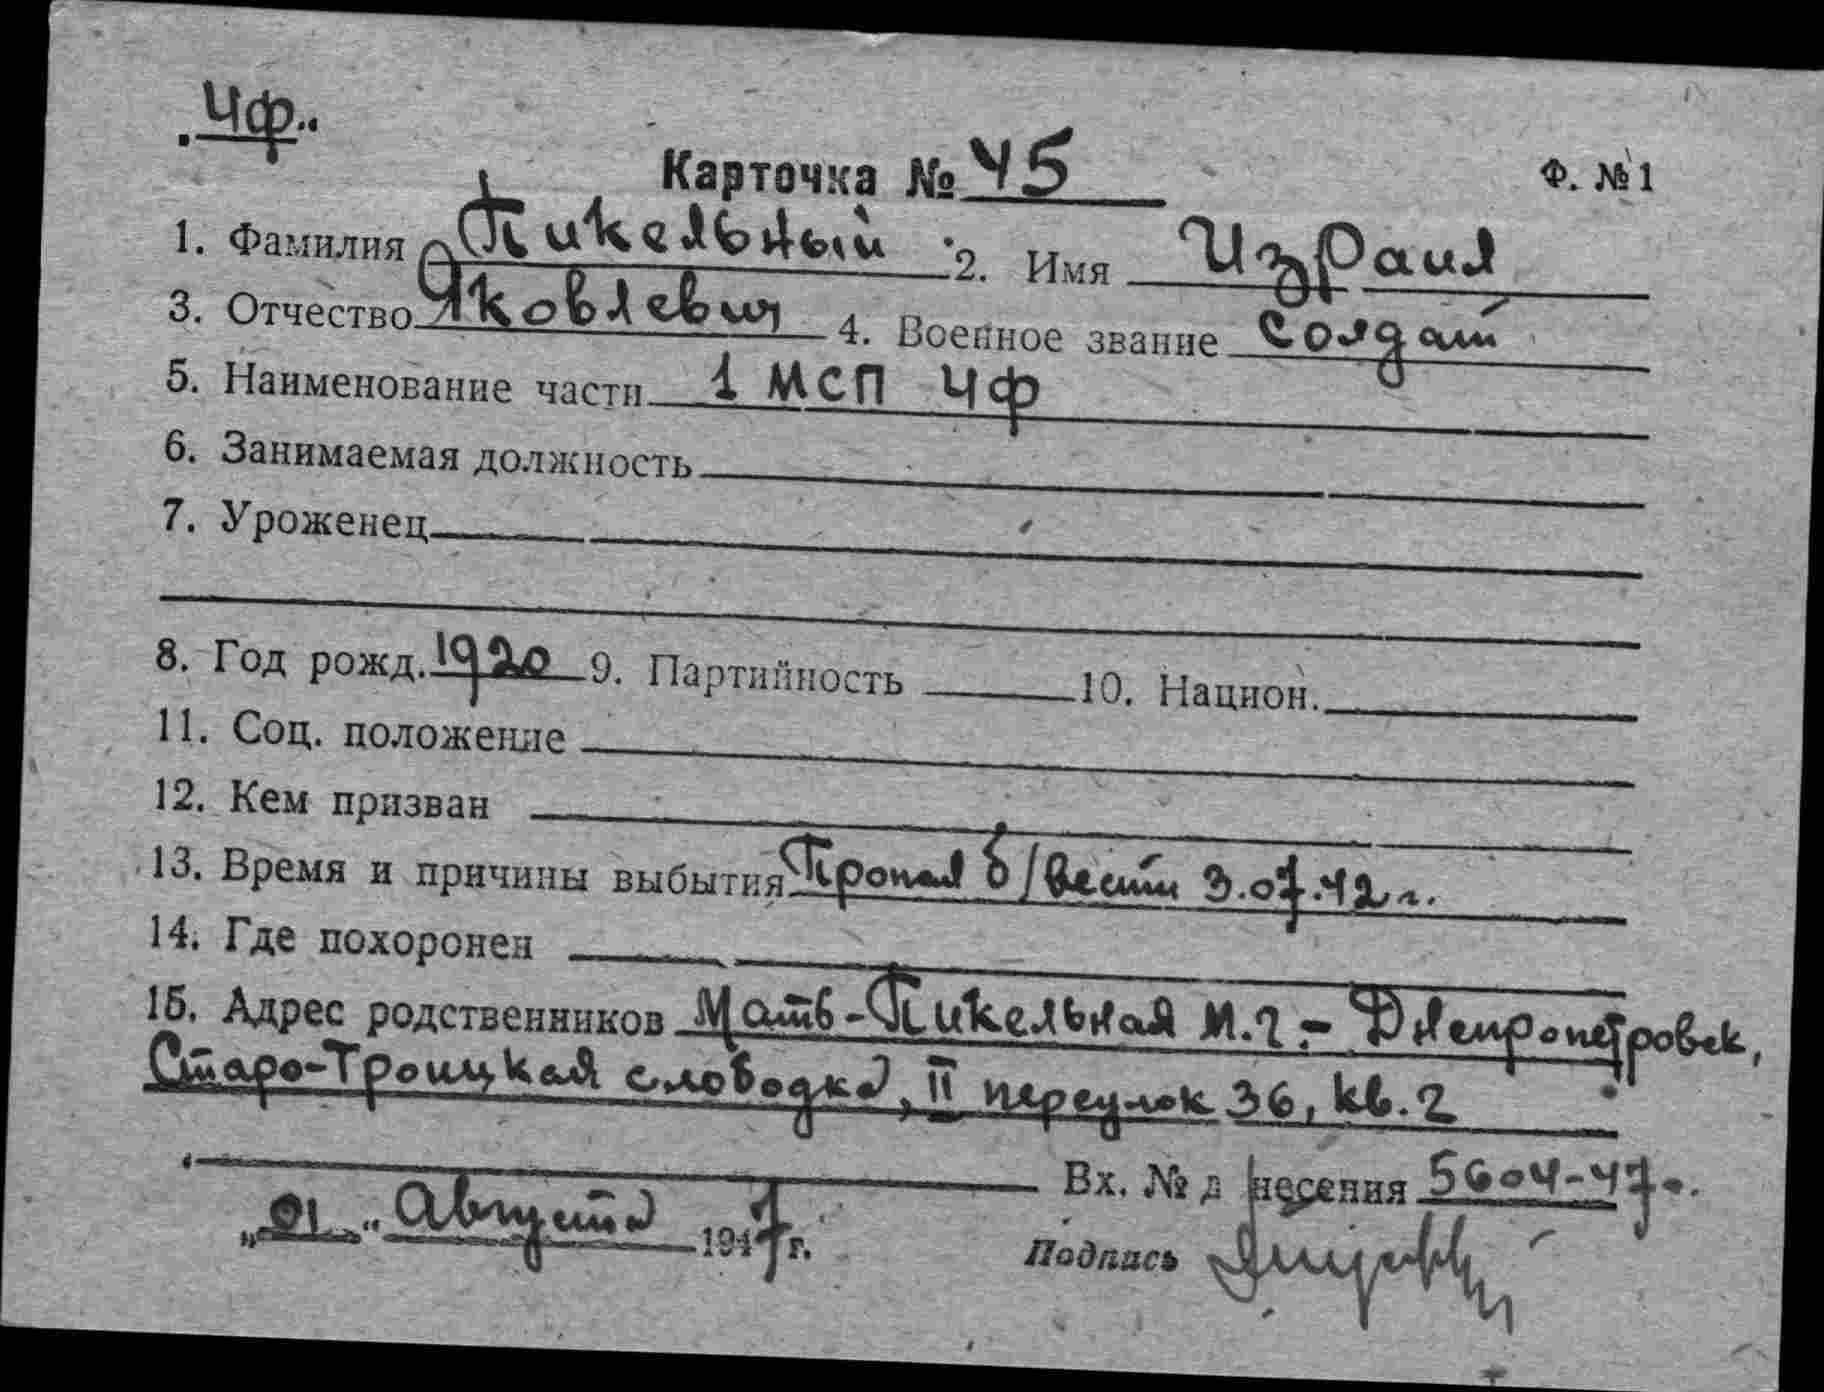 „ЧФ"
Карточка № 45
Ф. № 1
1. Фамилия Пикельный 2. Имя Израил
3. Отчество Яковлевич 4. Военное звание солдат
5. Наименование части 1 МСП ЧФ
6. Занимаемая должность
7. Уроженец
8. Год рожд. 1920 9. Партийность 10. Национ.
11. Соц. положение
12. Кем призван
13. Время и причины выбытия Пропал б/вести 3.07.42 г.
14. Где похоронен
15. Адрес родственников Мать-Пикельная М.Г.- Днепропетровск,
Старо-Троицкая слободка, II переулок 36, кв. 2
Вх. № д несения 5604-47г.
„01" Августа 1947 г. Подпись